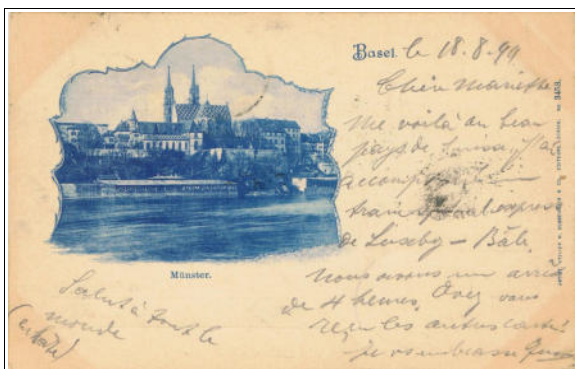 Basel. le 18.8.99
Chère Mariette
Me voilà au beau
pays de Suisse. J'ai
accompagné le
train spécial express
de Luxbg – Bâle.
Nous avons un arrêt
de 4 heures. Avez vous
reçu les autres cartes
je vs embrasse
Münster.
Salut à tout le
monde